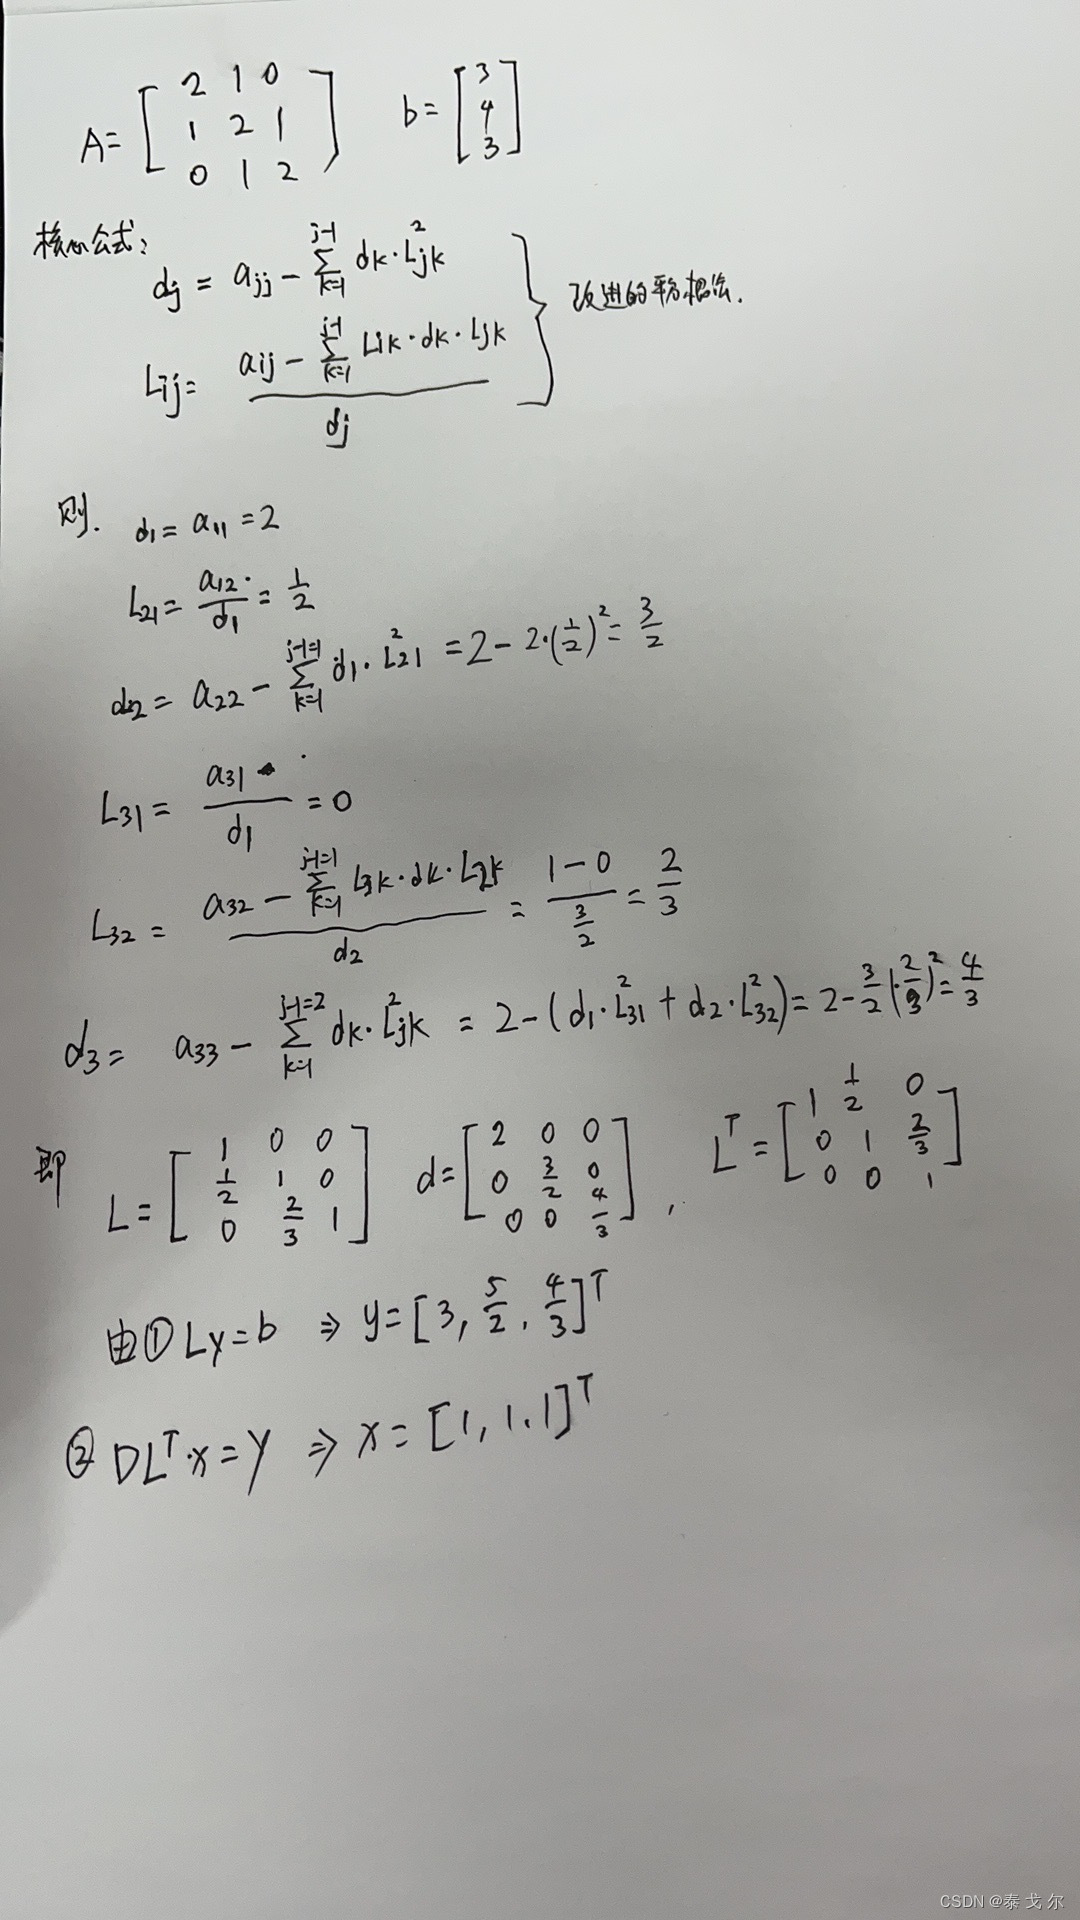 A = [ 2 1 0    b = [ 3
1 2 1    4
0 1 2 ]    3 ]
核心公式:
dj = ajj - ∑_{k=1}^{j-1} dk·Ljk²
Lij = (aij - ∑_{k=1}^{j-1} Lik·dk·Ljk) / dj } 改进的平方根法.
则. d1 = a11 = 2
L21 = a12 / d1 = 1/2
d2 = a22 - ∑_{k=1}^{j-1=1} d1·L21² = 2 - 2·(1/2)² = 3/2
L31 = a31 / d1 = 0
L32 = (a32 - ∑_{k=1}^{j-1=1} L3k·dk·L2k) / d2 = (1-0) / (3/2) = 2/3
d3 = a33 - ∑_{k=1}^{j-1=2} dk·Ljk² = 2 - (d1·L31² + d2·L32²) = 2 - 3/2 (2/3)² = 4/3
即 L = [ 1 0 0    d = [ 2 0 0    L^T = [ 1 1/2 0
1/2 1 0    0 3/2 0    0 1 2/3
0 2/3 1 ]    0 0 4/3 ] ,    0 0 1 ]
由① Ly = b ⇒ y = [3, 5/2, 4/3]^T
② DL^T·x = y ⇒ x = [1, 1, 1]^T
CSDN @泰戈尔